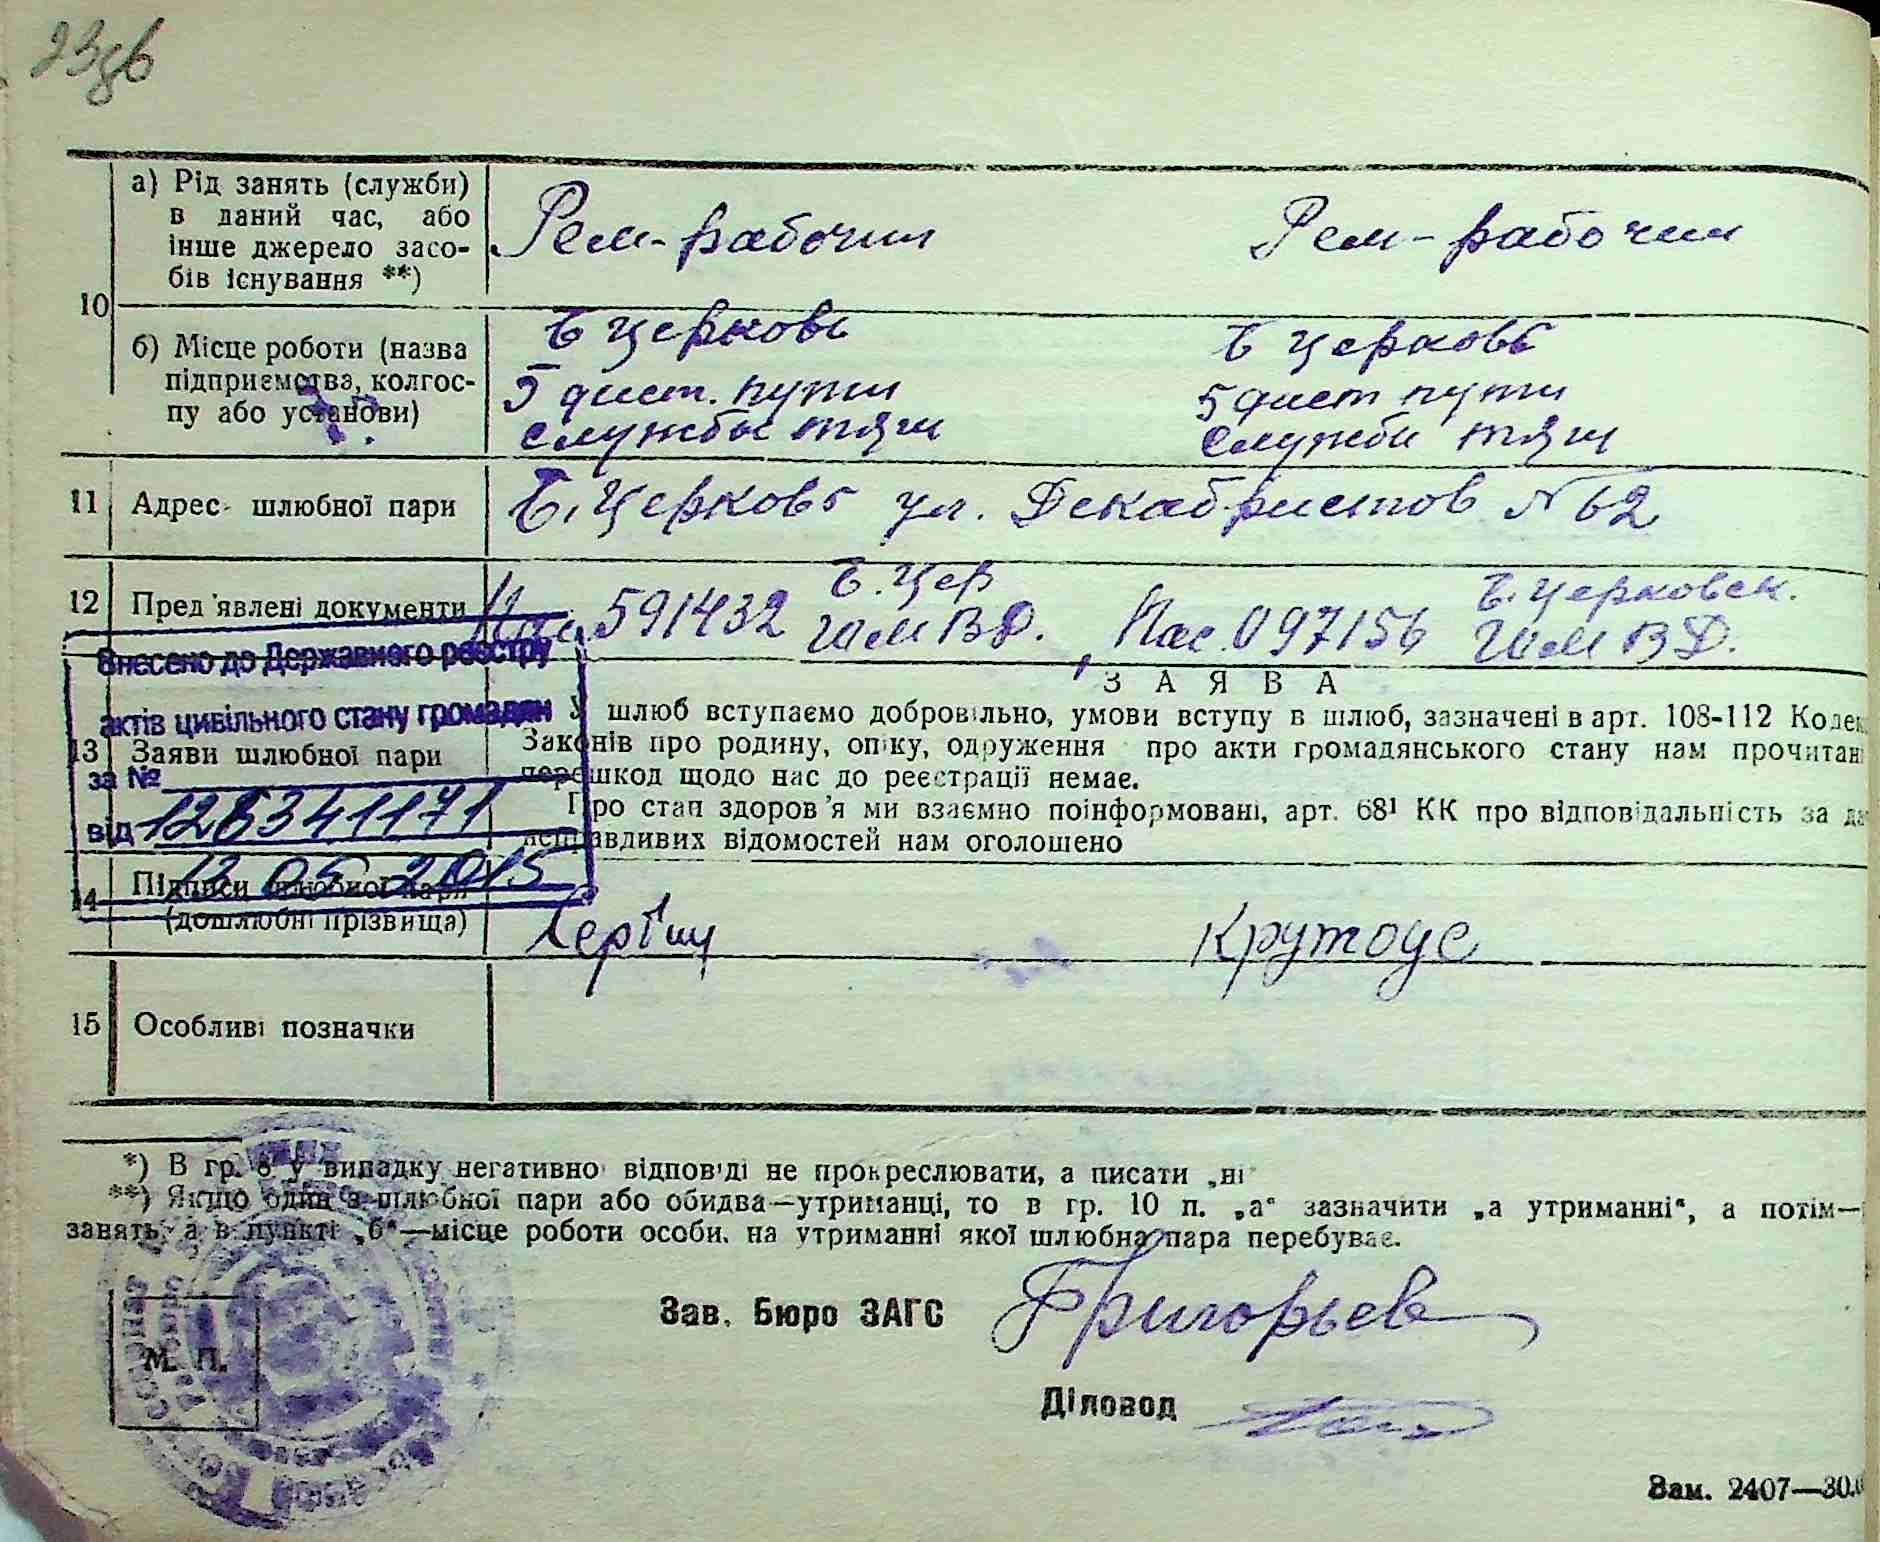 а) Рід занять (служби) в даний час, або інше джерело засобів існування **)
Рем-рабочий
Рем-рабочий
10
б) Місце роботи (назва підприємства, колгоспу або установи)
Б Церковь
5 дист. пути
службы тяги
Б Церковь
5 дист пути
службы тяги
11 Адрес шлюбної пари
Б. Церковь ул. Декабристов N 62
12 Пред'явлені документи
591432 Б. Цер
Пас. 097156 Б. Церковск.
Внесено до Державного реєстру
актів цивільного стану громадян
за №
126341171
від
12 05 2015
ЗАЯВА
13 Заяви шлюбної пари
У шлюб вступаємо добровільно, умови вступу в шлюб, зазначені в арт. 108-112 Кодек
Законів про родину, опіку, одруження про акти громадянського стану нам прочитан
перешкод щодо нас до реєстрації немає.
Про стан здоров'я ми взаємно поінформовані, арт. 68¹ КК про відповідальність за да
неправдивих відомостей нам оголошено
14 Підписи шлюбної пари
(дошлюбні прізвища)
15 Особливі позначки
*) В гр. 8 у випадку негативної відповіді не прокреслювати, а писати „ні"
**) Якщо один з шлюбної пари або обидва—утриманці, то в гр. 10 п. „а" зазначити „а утриманні", а потім—
занять, а в пункті „б"—місце роботи особи, на утриманні якої шлюбна пара перебуває.
Зав. Бюро ЗАГС Григорьев
М. П.
Діловод
Зам. 2407—30.